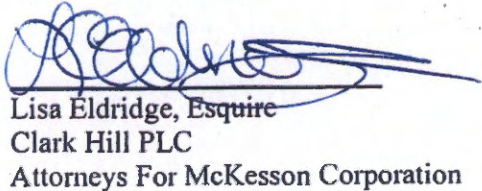 Lisa Eldridge, Esquire
Clark Hill PLC
Attorneys For McKesson Corporation